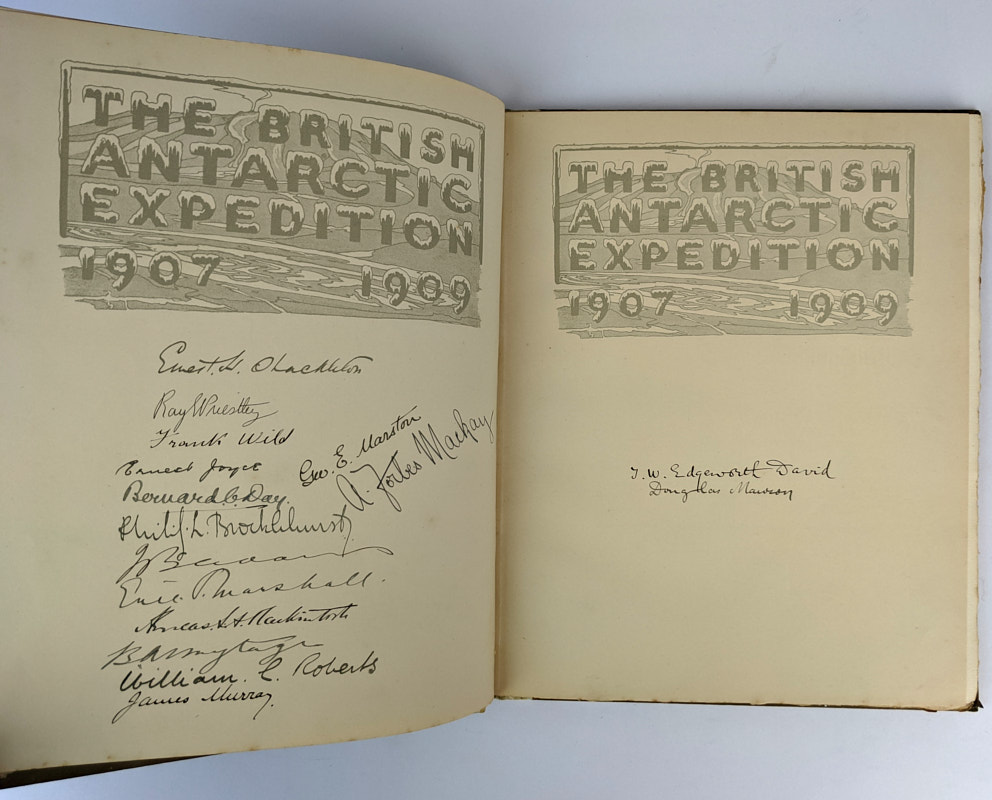 THE BRITISH
ANTARCTIC
EXPEDITION
1907 1909
Ernest H. Shackleton
Raymond Priestley
Frank Wild
Ernest Joyce
Geo. E. Marston
A. Forbes Mackay
Bernard C. Day.
Philip L. Brocklehurst
Eric P. Marshall.
Aeneas L. A. Mackintosh
B Armytage
William. C. Roberts
James Murray.
THE BRITISH
ANTARCTIC
EXPEDITION
1907 1909
T. W. Edgeworth David
Douglas Mawson